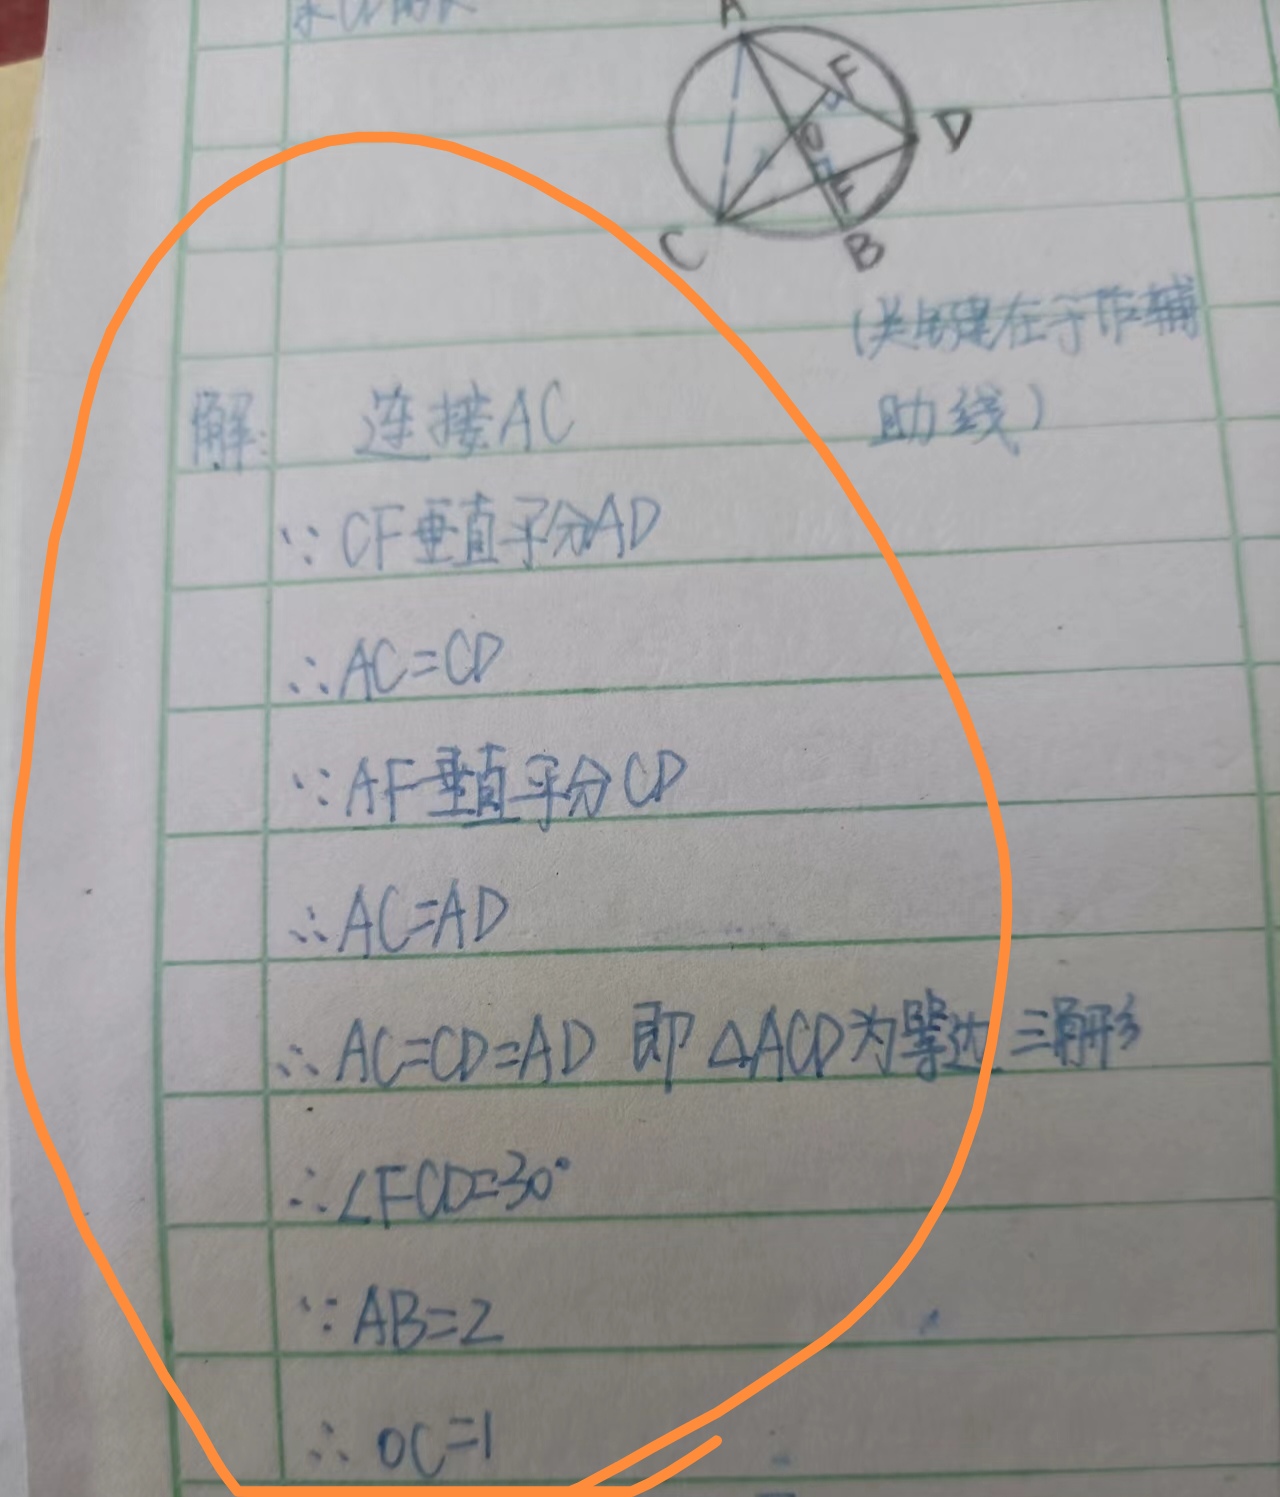 A
F
O
D
F
C
B
(关键在于作辅
助线)
解: 连接AC
∵ CF垂直平分AD
∴ AC=CD
∵ AF垂直平分CD
∴ AC=AD
∴ AC=CD=AD 即 △ACD为等边三角形
∴ ∠FCD=30°
∵ AB=2
∴ OC=1